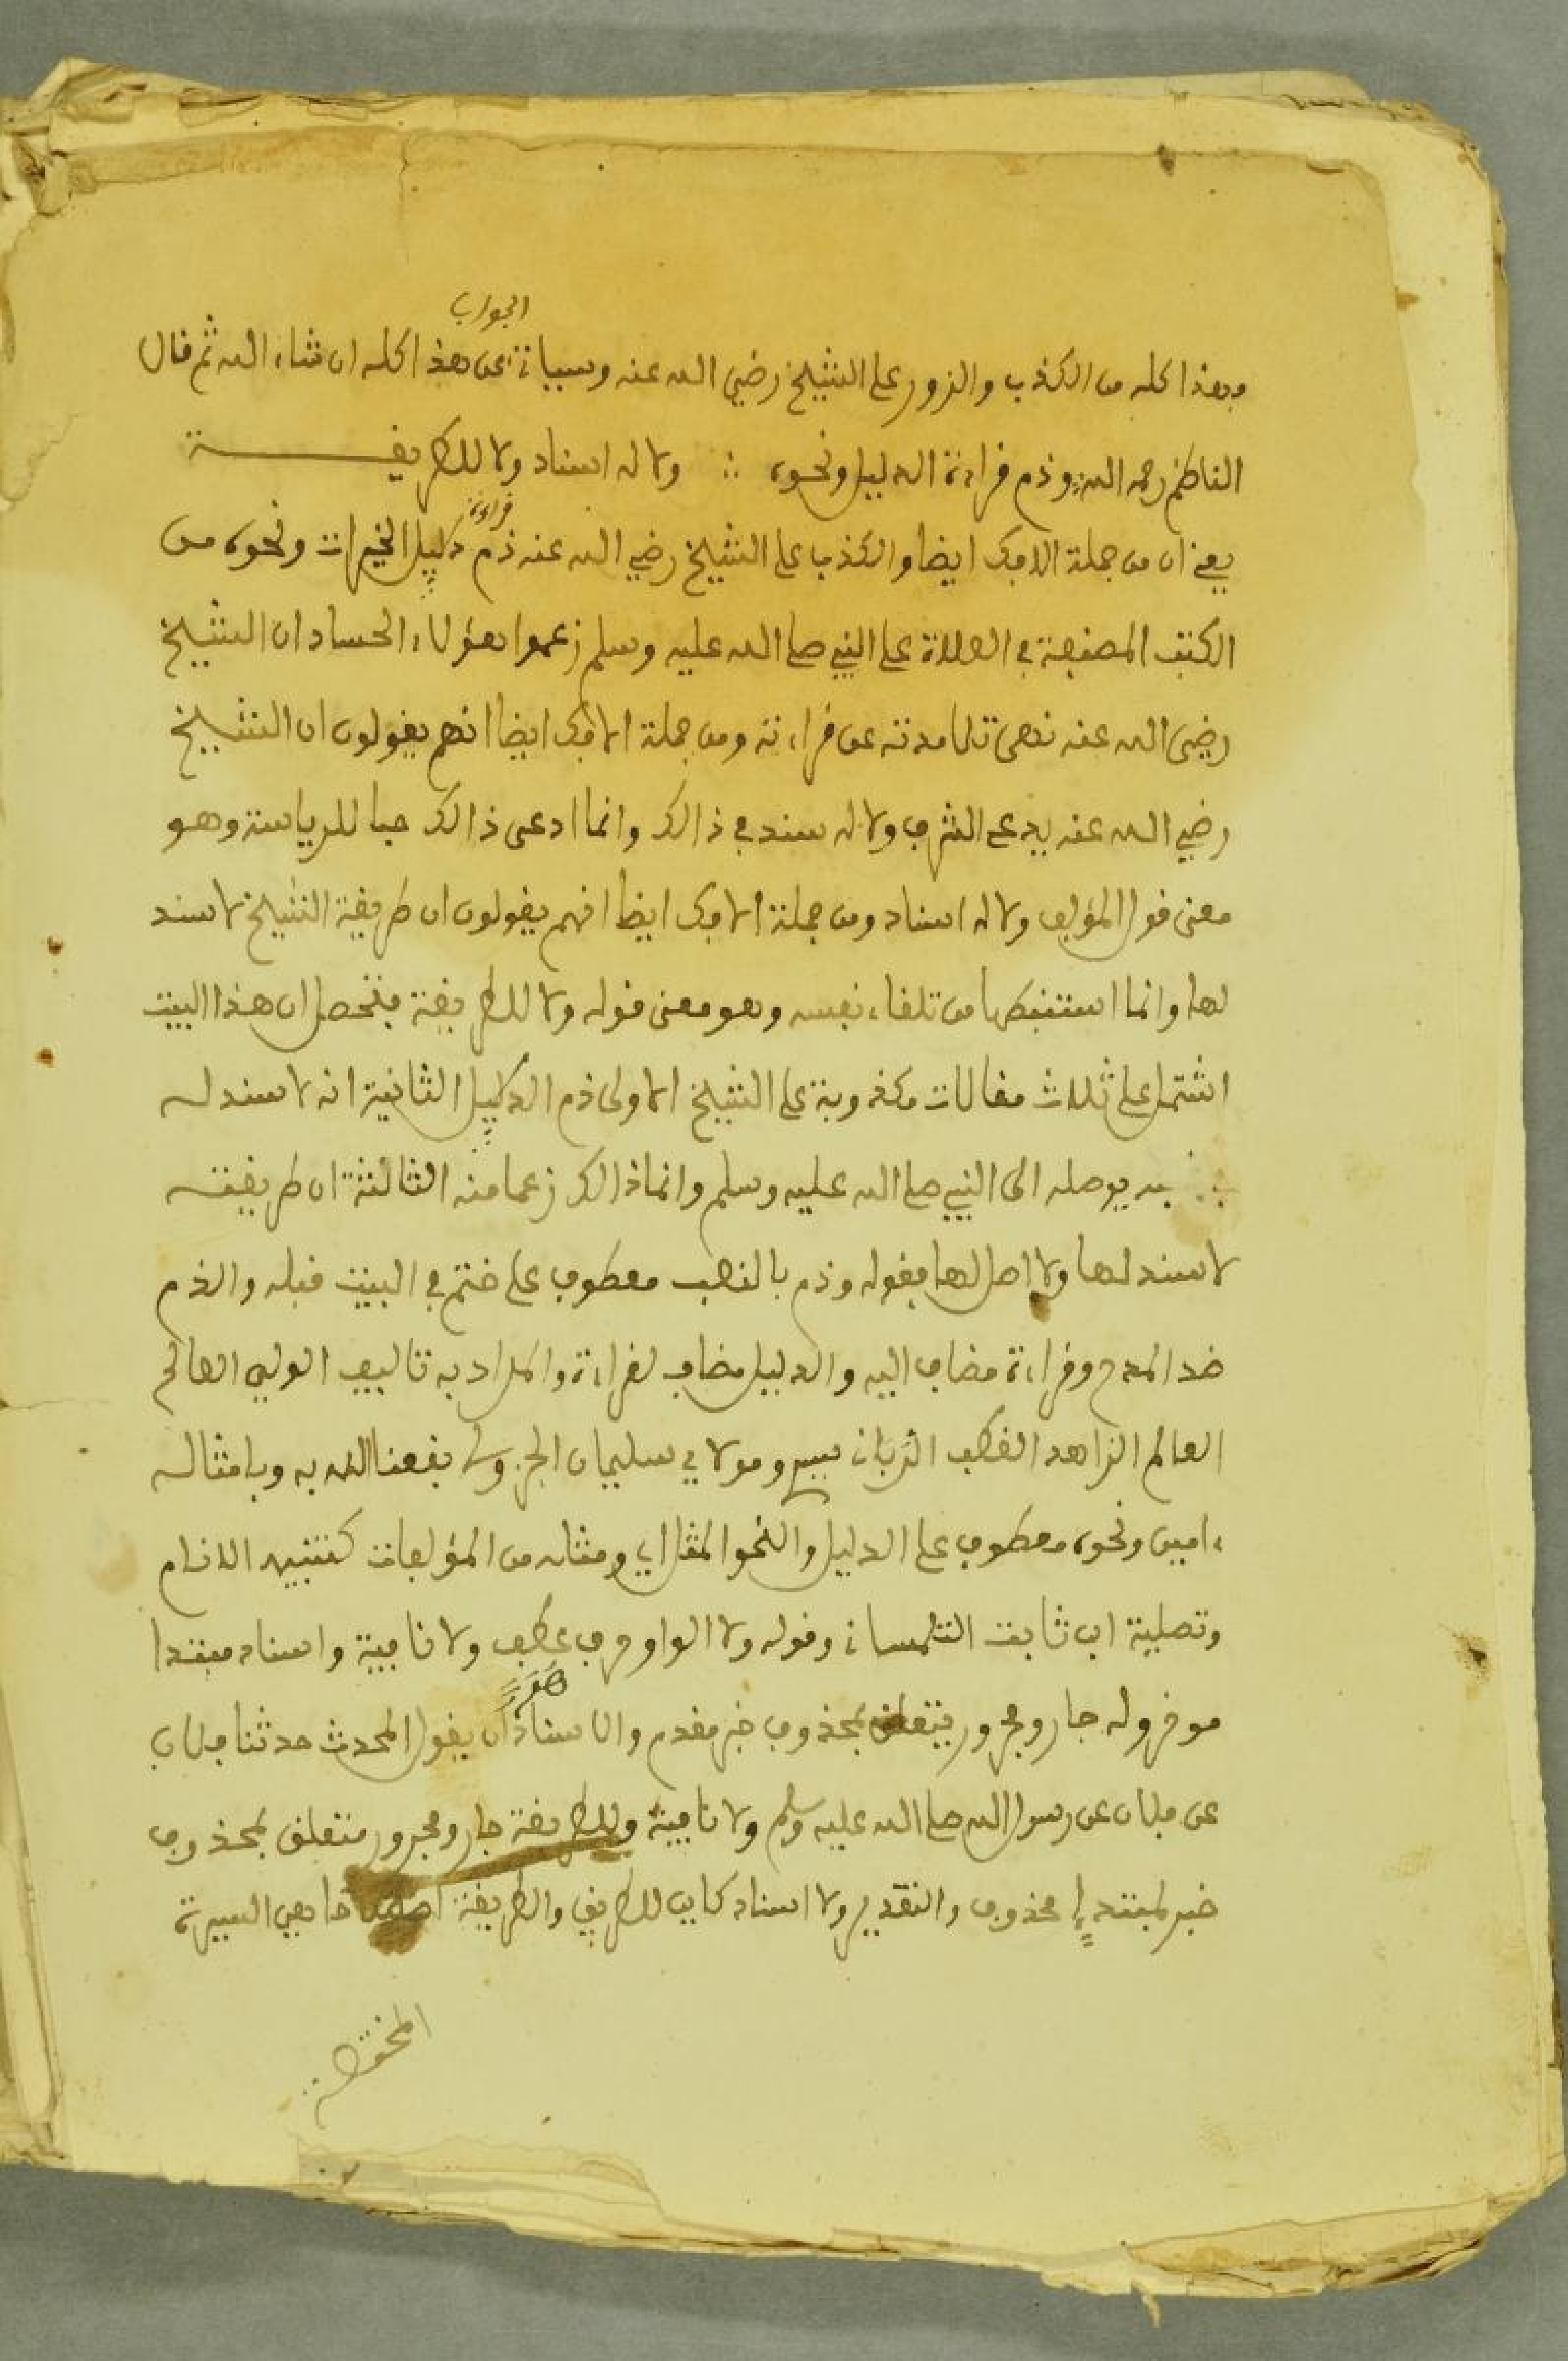 الجواب
وهذا كله من الكذب والزور على الشيخ رضي الله عنه وسياتي عن هذا كله ان شاء الله ثم قال
الناظم رحمه الله وذم قراءة الدليل ونحوه ∴ ولا له اسناد ولا للطريقــــة
قراءة
يعني ان من جملة الافك ايضا والكذب على الشيخ رضي الله عنه ذم دليل الخيرات ونحوه من
الكتب المصنفة في الصلاة على النبي صلى الله عليه وسلم زعموا هؤلاء الحساد ان الشيخ
رضي الله عنه نهى تلامدته عن قراءته ومن جملة الافك ايضا انهم يقولون ان الشيخ
رضي الله عنه يدعي الشرف ولا له سند في ذالك وانما ادعى ذالك حبا للرياسة وهو
معنى قول المؤلف ولا له اسناد ومن جملة الافك ايضا انهم يقولون ان طريقة الشيخ لا سند
لها وانما استنبطها من تلقاء نفسه وهو معنى قوله ولا للطريقة فتحصل ان هذا البيت
اشتمل على ثلاث مقالات مكذوبة على الشيخ الاولى ذم الدليل الثانية انه لا سند له
به يوصله الى النبي صلى الله عليه وسلم وانما ذالك زعما منه الثالثة ان طريقته
لا سند لها ولا اصل لها فقوله وذم بالنصب معطوف على ختم في البيت قبله والذم
ضد المدح وقراءة مضاف اليه والدليل مضاف لقراءة والمراد به تاليف الولي الصالح
العالم الزاهد القطب الرباني سيدي ومولاي سليمان الجزولي نفعنا الله به وبامثاله
ءامين ونحوه معطوف على الدليل والنحو المثل اي ومثله من المؤلفات كتنبيه الانام
وتصلية ابن ثابت التلمساني وقوله ولا الواو حرف عطف ولا نافية واسناد مبتدا
هو
موخر وله جار ومجرور يتعلق بمحذوف خبر مقدم والاسناد ان يقول المحدث حدثنا فلان
عن فلان عن رسول الله صلى الله عليه وسلم ولا نافية وللطريقة جار ومجرور متعلق بمحذوف
خبر لمبتدإ محذوف والتقدير ولا اسناد كاين للطريق والطريقة هي السيرة